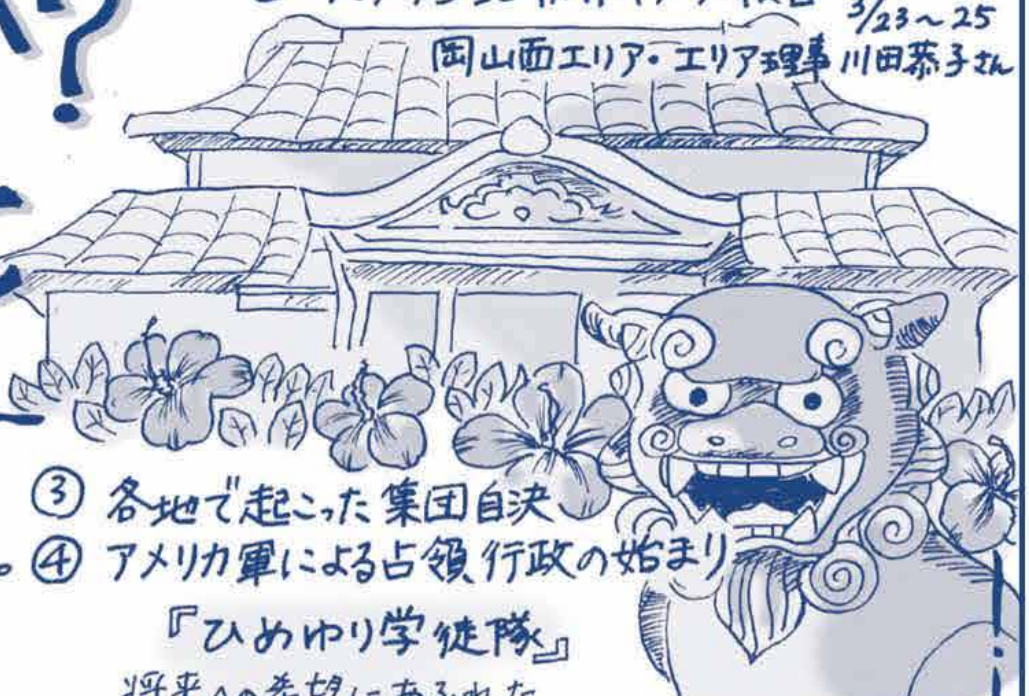 ?
3/23～25
岡山西エリア・エリア理事 川田恭子さん
③ 各地で起こった集団自決
④ アメリカ軍による占領行政の始まり
『ひめゆり学徒隊』
将来への希望にあふれた